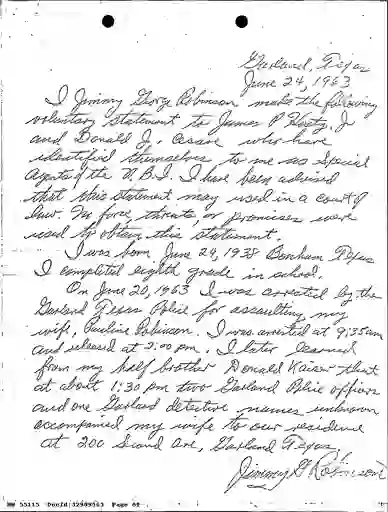 Garland, Texas
June 24, 1963
I Jimmy George Robinson make the following
voluntary statement to James P Hosty, Jr
and Donald J. who have
identified themselves to me as Special
Agents of the F.B.I. I have been advised
that this statement may used in a court of
law. No force, threats, or promises were
used to obtain this statement.
I was born June 24, 1938 Bonham Texas
I completed eighth grade in school.
On June 20, 1963 I was arrested by the
Garland Texas Police for assaulting my
wife, Pauline Robinson. I was arrested at 9:35am
and released at 2:00 pm. I later learned
from my half brother Donald Kaiser that
at about 1:30 pm two Garland Police officers
and one Garland detective names unknown
accompanied my wife to our residence
at 200 Second Ave, Garland Texas
Jimmy G Robinson
55115 DocId:32989563 Page 62